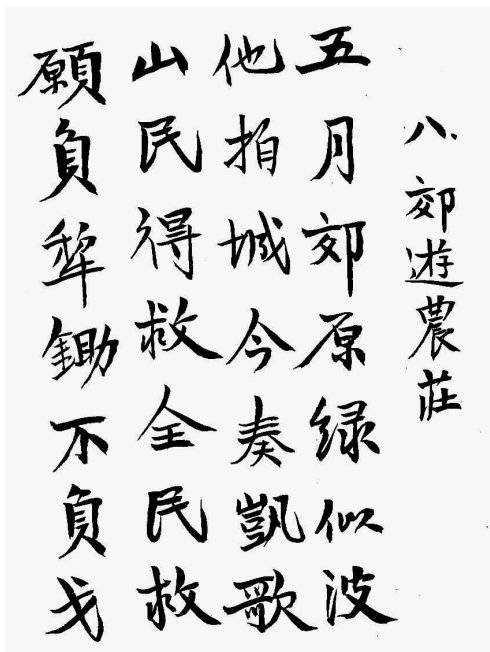 八.郊遊農莊
五月郊原绿似波
他拍城今奏凱歌
山民得救全民救
願負犂鋤不負戈